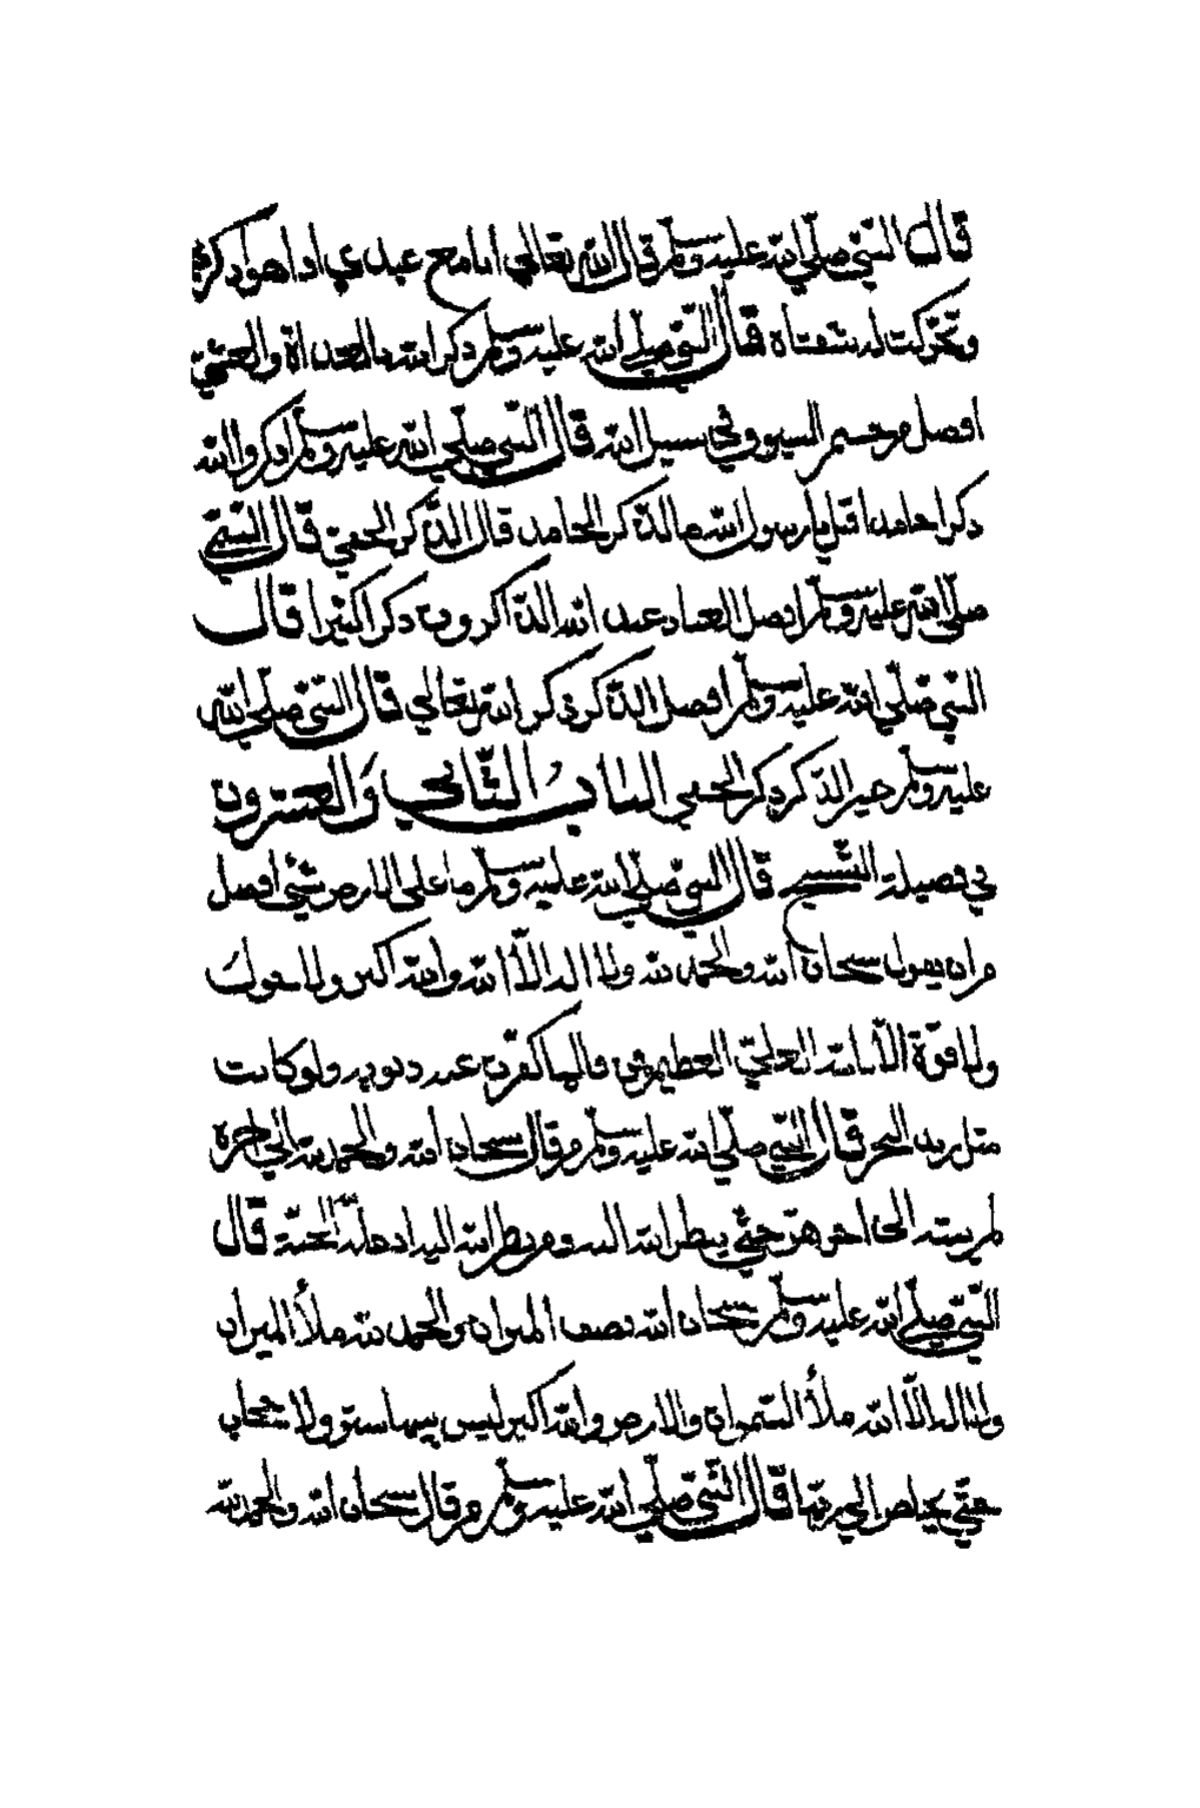 قال النبي صلى الله عليه وسلم قال الله تعالى انا مع عبدي اذا هو اذكرني
وتحركت له شفتاه قال النبي صلى الله عليه وسلم ذكر الله بالغداة والعشي
افضل من السيوف في سبيل الله قال النبي صلى الله عليه وسلم اذكروا الله
ذكرا خامدا قيل يا رسول الله ما الذكر الخامد قال الذكر الخفي قال النبي
صلى الله عليه وسلم افضل العباد عند الله الذاكرون ذكرا كثيرا قال
النبي صلى الله عليه وسلم افضل الذكر ذكر الله تعالى قال النبي صلى الله
عليه وسلم خير الذكر ذكر الخفي الباب الثاني والعشرون
في فضيلة التسبيح قال النبي صلى الله عليه وسلم ما على الارض شيء افضل
من ان يقول سبحان الله والحمد لله ولا اله الا الله والله اكبر ولا حول
ولا قوة الا بالله العلي العظيم من قالها كفرت عنه ذنوبه ولو كانت
مثل زبد البحر قال النبي صلى الله عليه وسلم من قال سبحان الله والحمد لله الى اخره
حتى ينظر الله اليه ومن نظر الله اليه ادخله الجنة قال
النبي صلى الله عليه وسلم سبحان الله نصف الميزان والحمد لله ملأ الميزان
ولا اله الا الله ملأ السموات والارض والله اكبر ليس بينها ستر ولا حجاب
حتى يخلص الى ربها قال النبي صلى الله عليه وسلم من قال سبحان الله والحمد لله